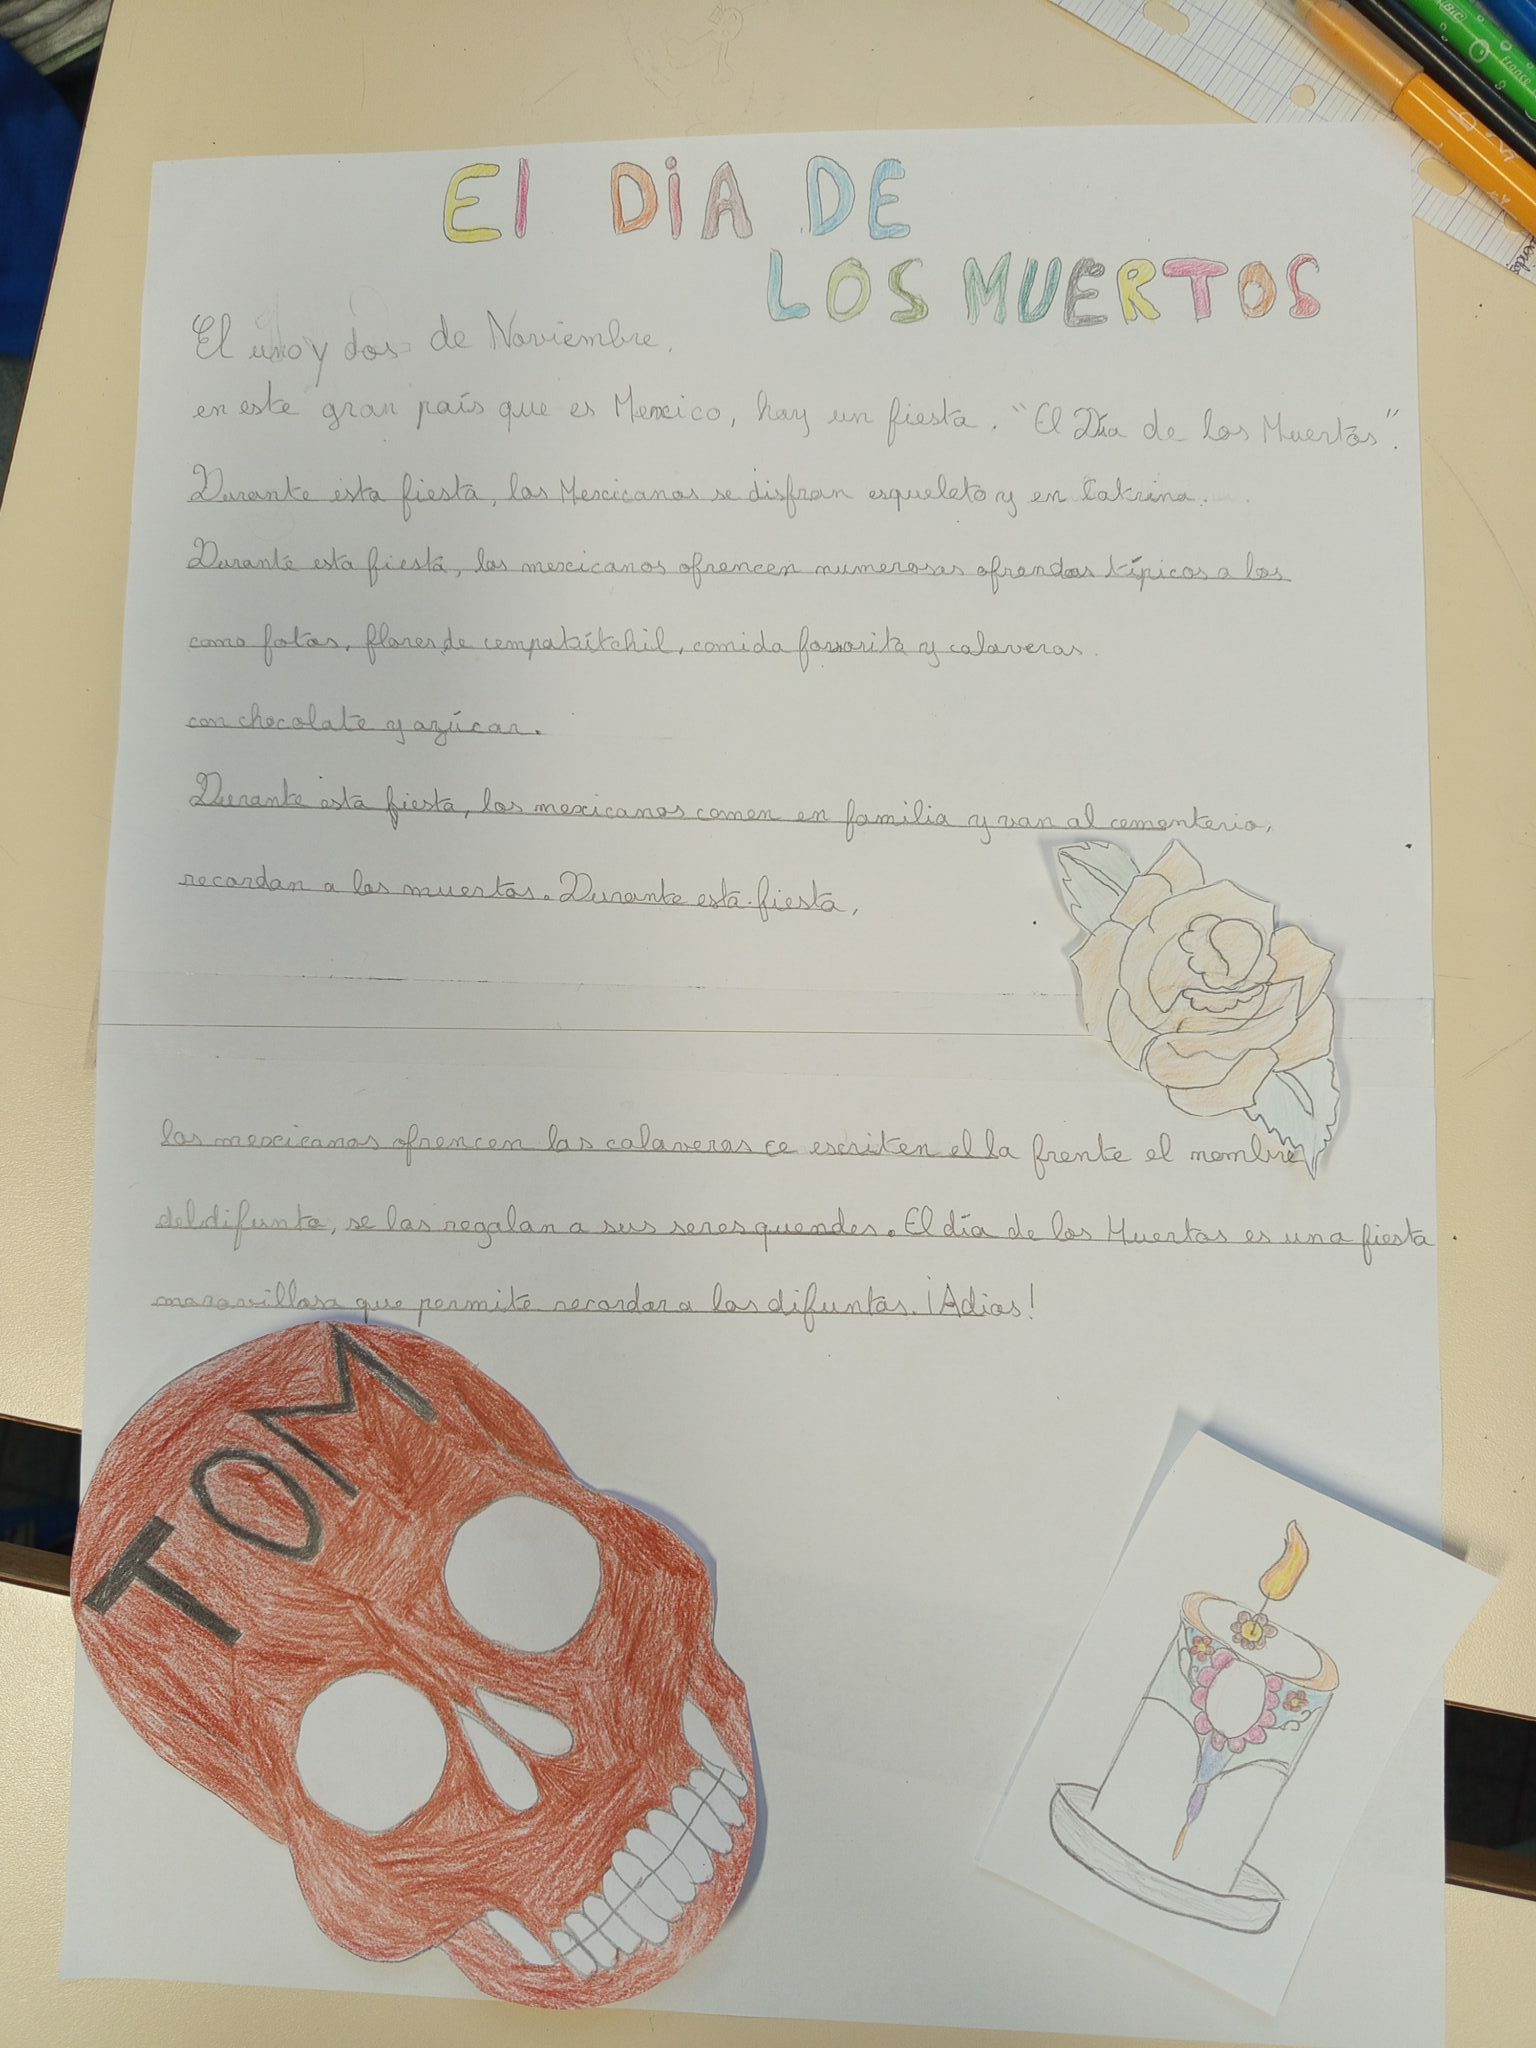 El DiA DE
LOS MUERTOS
El uno y dos de Noviembre.
en este gran país que es Mexico, hay un fiesta. "El Día de los Muertos".
Durante esta fiesta, los Mexicanos se disfran esqueleto y en Catrina.
Durante esta fiesta, los mexicanos ofrencen numerosas ofrendas típicos a los
como fotos, flores de cempakítchil, comida favorita y calaveras.
con chocolate y azúcar.
Durante esta fiesta, los mexicanos comen en familia y van al cementerio,
recordan a los muertos. Durante esta fiesta,
los mexicanos ofrencen las calaveras ce escriten el la frente el nombre
del difunto, se las regalan a sus seres quendes. El día de los Muertos es una fiesta
maravillosa que permite recordar a los difuntas. ¡Adios!
TOM
BIC
France